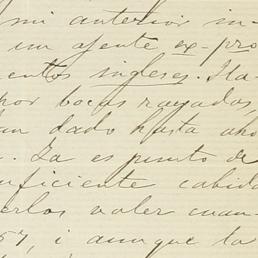 mi anterior in-
un ajente ex-pro
entos ingleses. Ha-
por bocas rayadas,
an dado hasta aho
. Ya es punto de
uficiente cabida
erlos valer cuan-
57, i aunque la